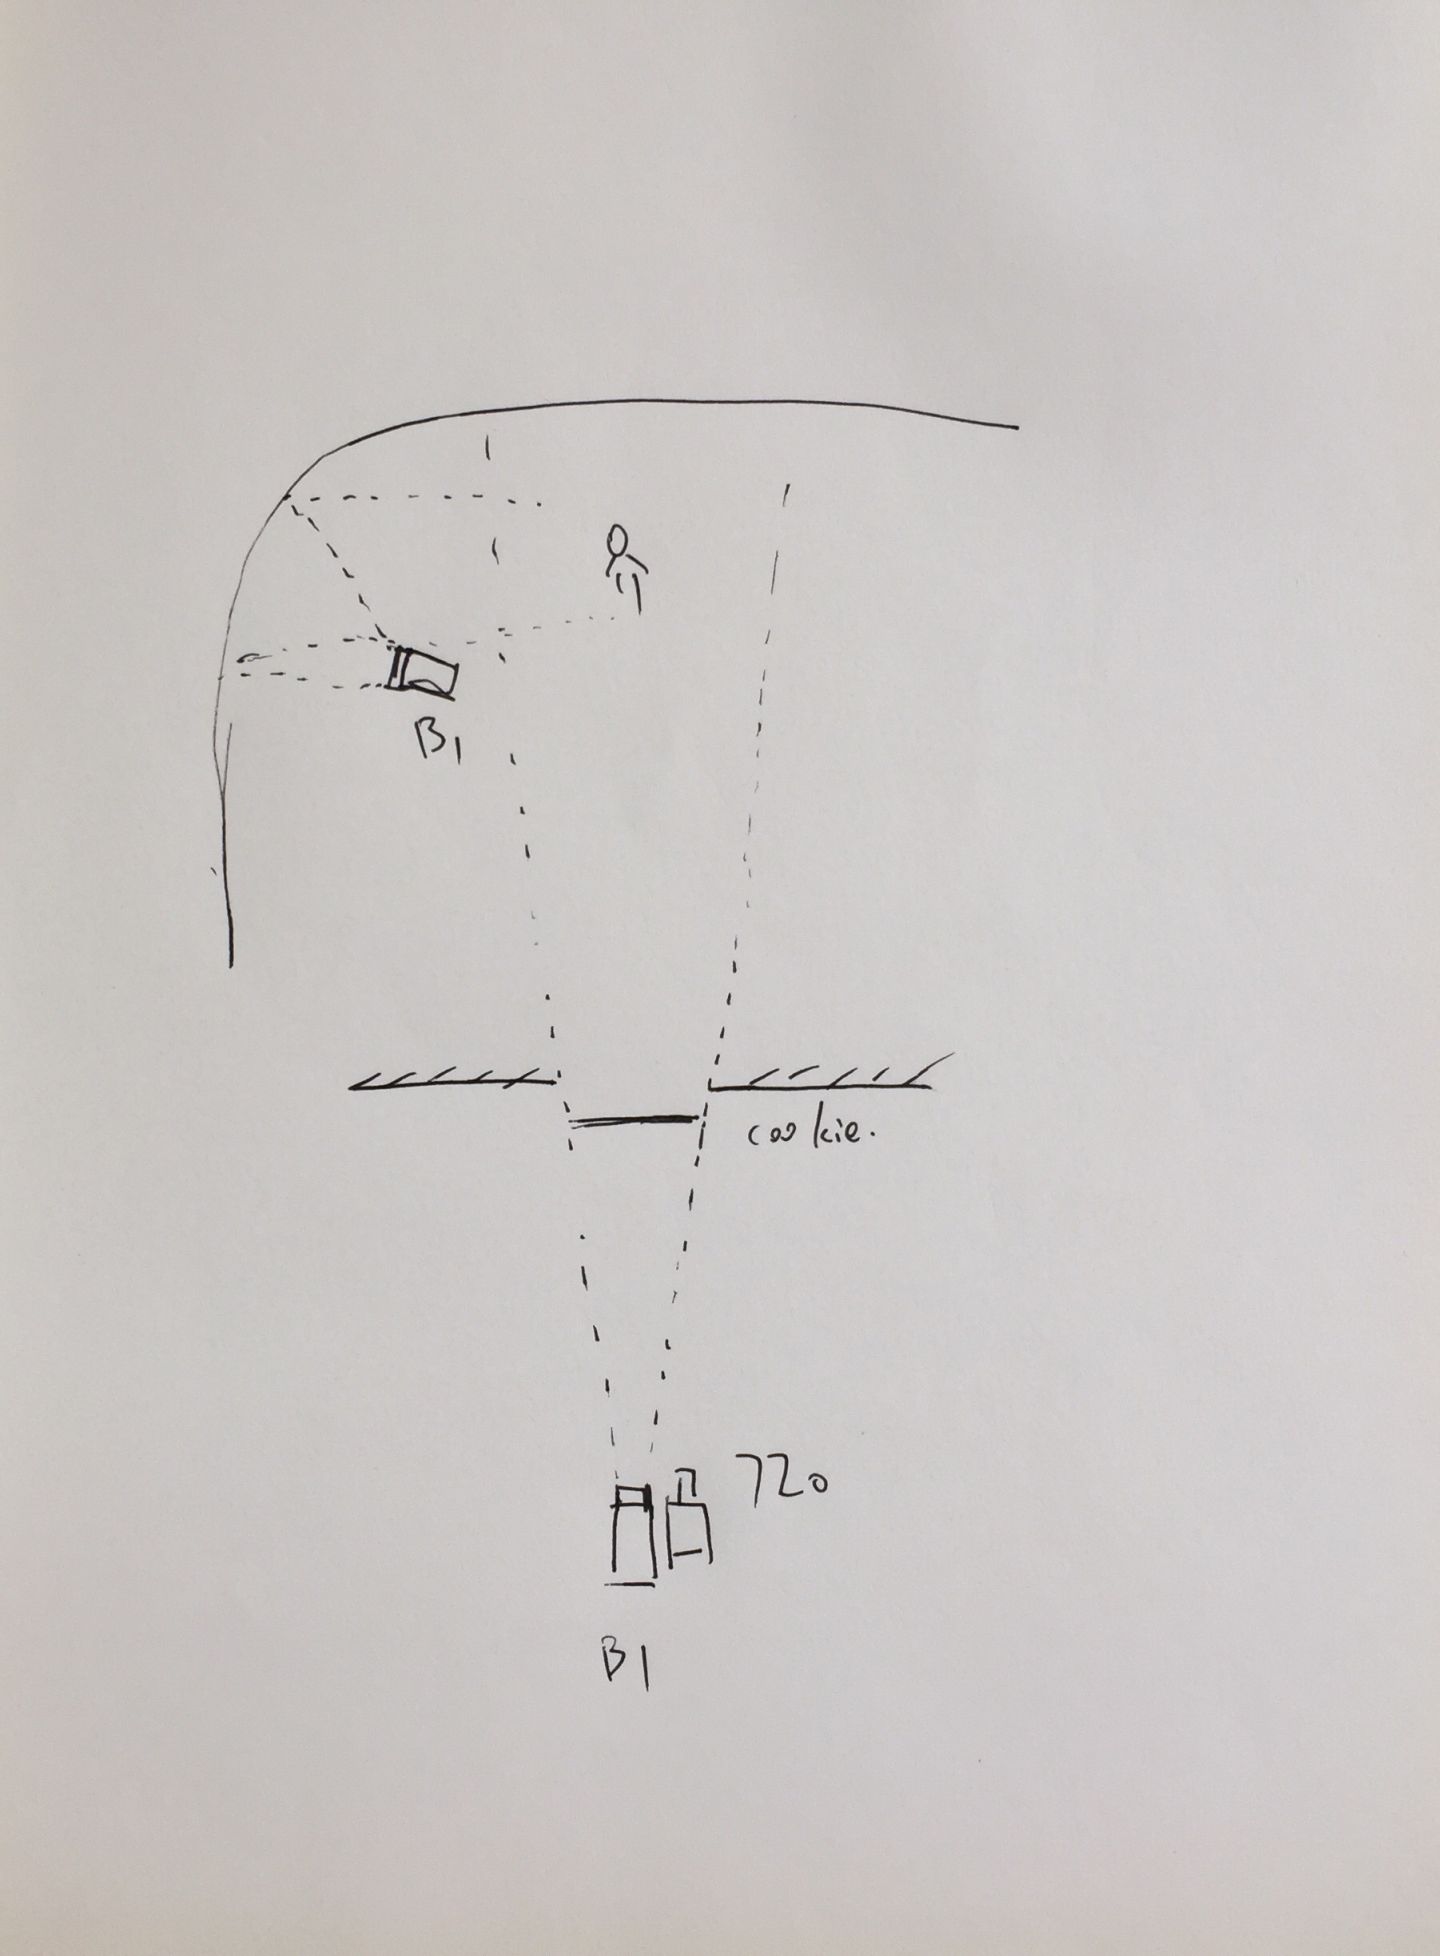 B1
cookie.
720
B1